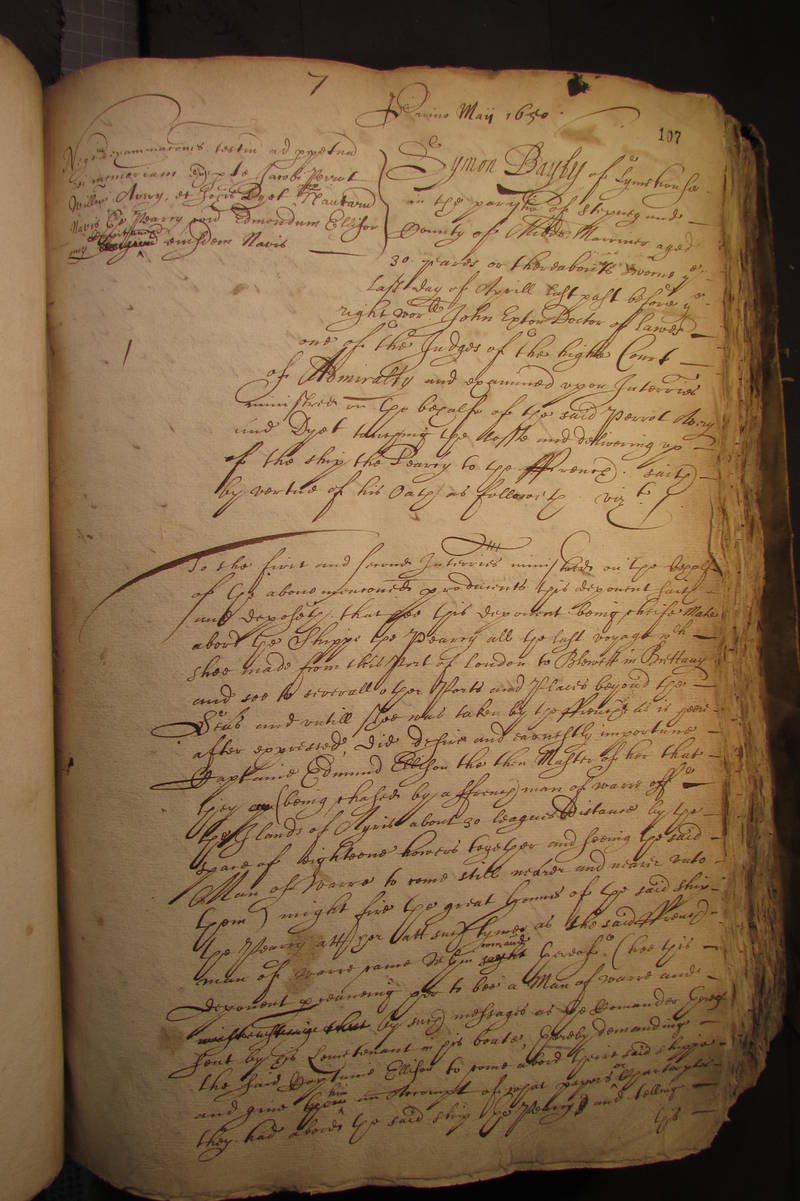 7
Primo Maij 1650.
107
examinaconis testiu ad ppetuã
rei memoriam ex pte Jacobi Perrot
Willmi Avery, et Dyet Nautarũ
Navis Pearry Edmondum Ellison
eiusdem Navis
Symon Bayly of Lymehouse
in the parish of Stepney and
County of Midds Marriner aged
30 yeares or thereabouts sworne ye
last day of Aprill last past before ye
right worll John Exton Doctor of lawes
one of the Judges of the highe Court
of Admiralty and examined upon Interries
ministred on the behalfe of the said Perrot Avery
and Dyet touching the losse and delivering up
of the ship the Pearry to the ffrench. saith
by vertue of his Oath as followeth vizt.
1
To the first and second Interries ministred on the behalfe
of the above mencioned producents this deponent saith
and deposeth that hee this deponent being cheife Mate
abord the Shippe the Pearry all the last voyage wch
shee made from this Port of london to Blewett in Brittany
and soe to severall other Ports and Places beyond the
Seas and untill shee was taken by the ffrench as is here
after expressed, did desire and earnestly importune
Captaine Edmund Ellison the then Master of her that
they (being chased by a ffrench man of warre off
the Islands of about 30 leagues distance by the
space of eighteene howers together and seeing the said
Man of warre to come still nearer and nearer unto
them) might fire the great gunnes of the said ship
the Pearry att her att such tyme as the said ffrench
man of warre came wthin comaund thereof (hee this
deponent perceaving her to bee a Man of warre and
by such messages as the Comander thereof
sent by his Leiuetenant in his boate, thereby demanding
the said Captaine Ellison to come abord their said shippe
and give him an Accompt of what papers or
they had abord the said ship the Pearry) and telling
his